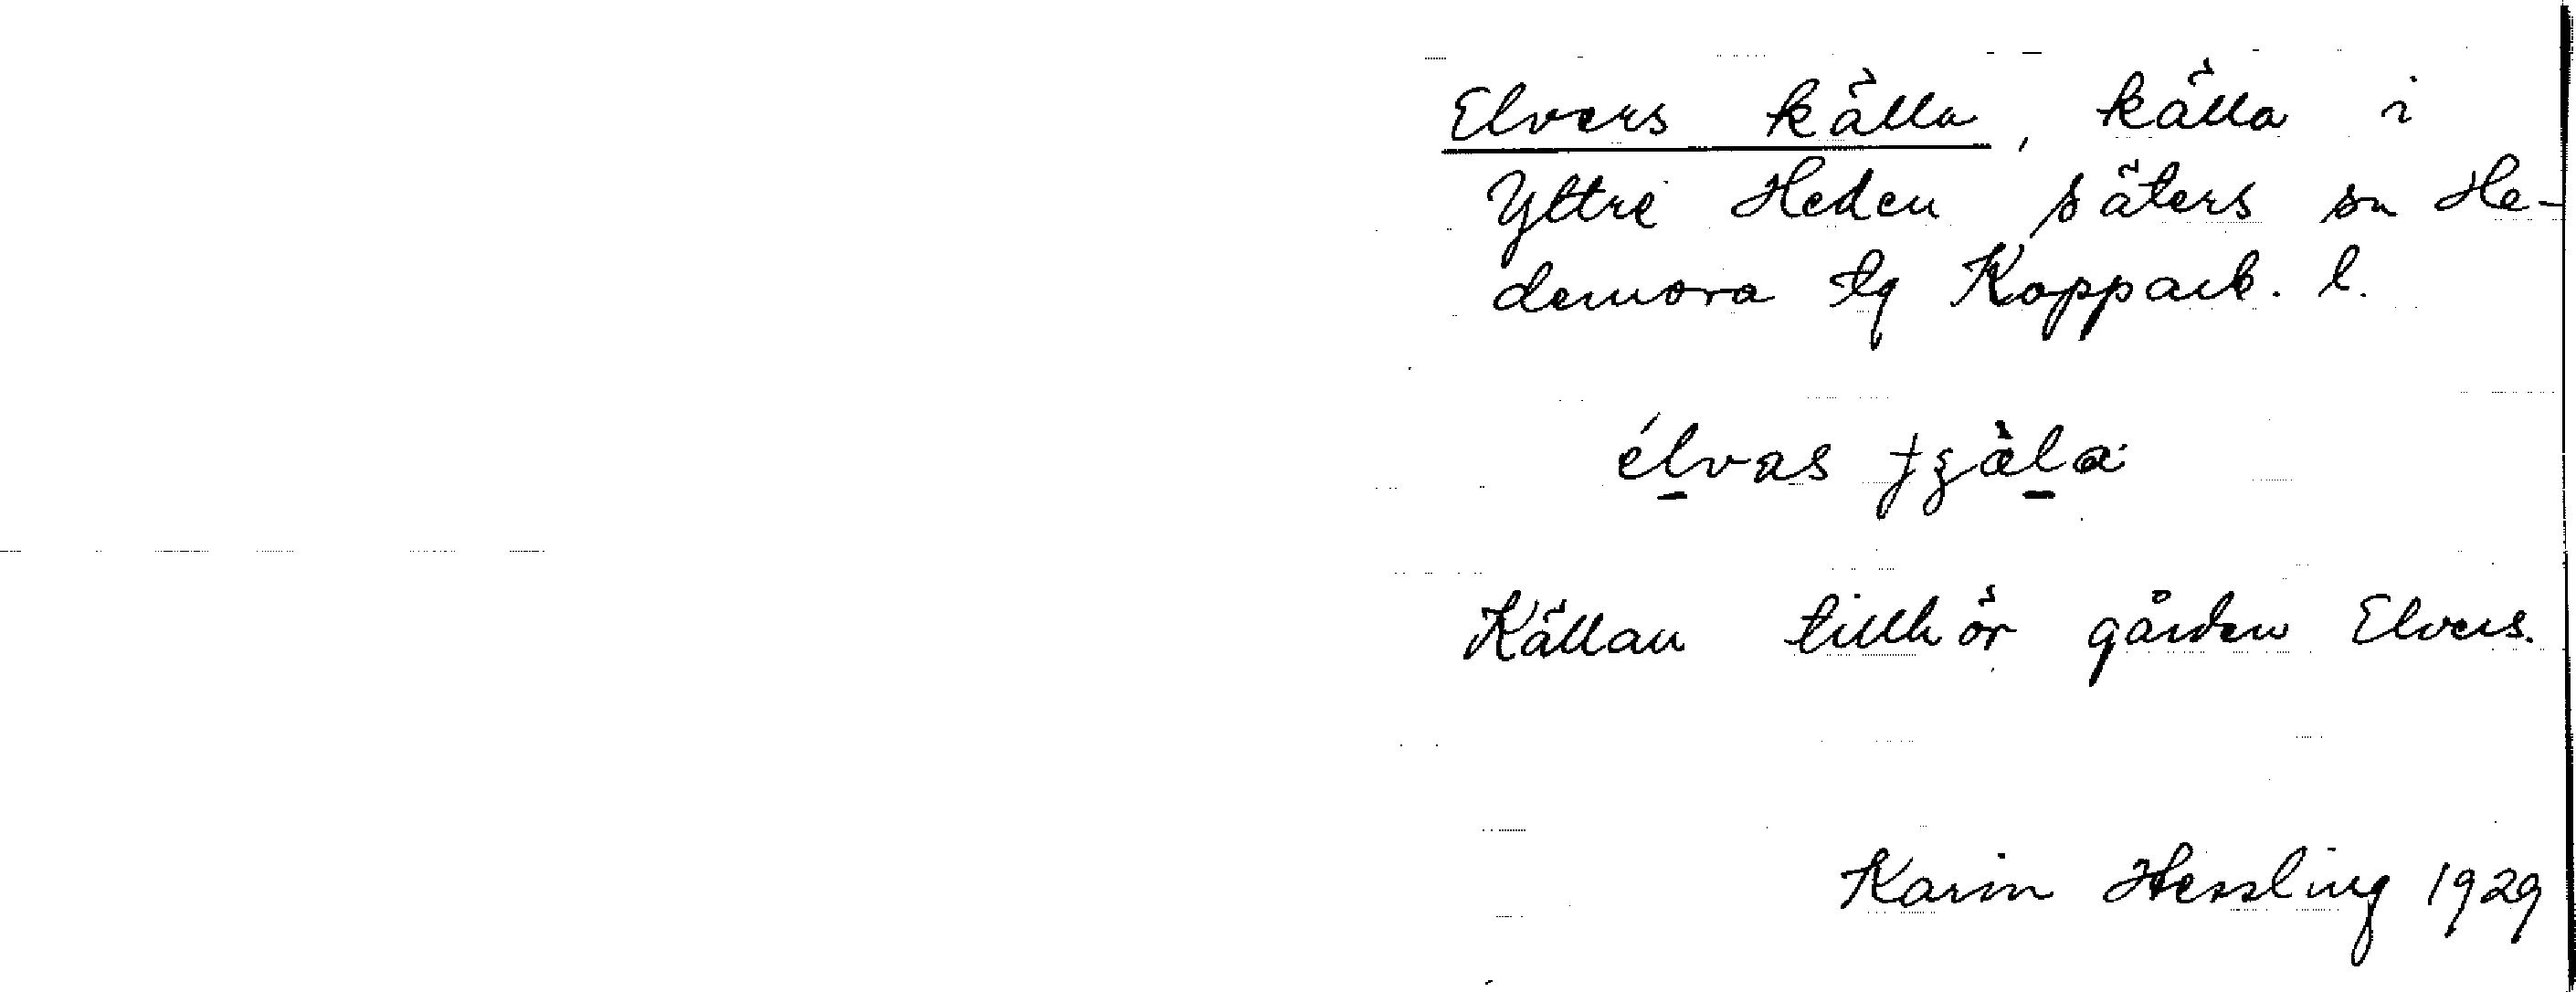 Elvers källa, källa i
Yttre Heden Säters sn He-
demora tg Kopparb. l.
Källan tillhör gården Elvers.
Karin Hessling 1929